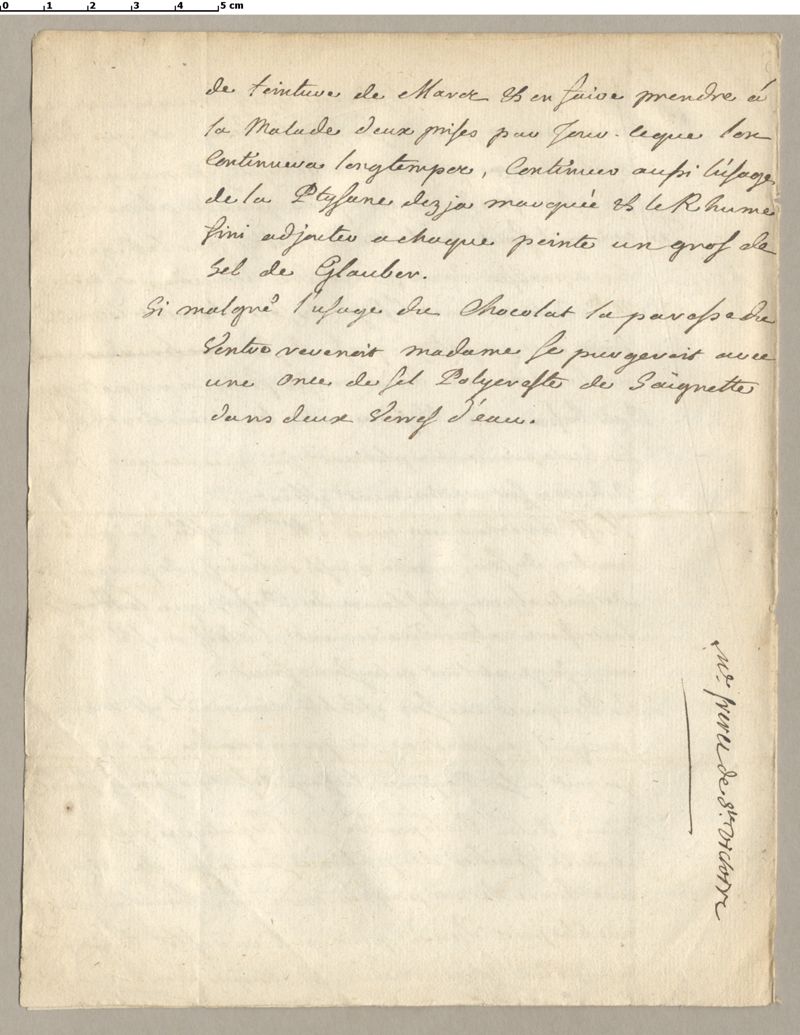 0 1 2 3 4 5 cm
de teinture de Marcz & en faire prendre á
la Malade deux prises par Jour. ceque lon
Continuera longtempce, Continuer aussi l'usage
de la Ptysane dezja marquée & le Rhume
fini adjouter a chaque peinte un gros de
Sel de Glauber.
Si malgré l'usage du Chocolat la paresse du
Ventre revenoit madame se purgeroit avec
une once de sel Polycreste de Saignette
dans deux Verres d'eau.
Mr. frere de Ste. Victoire